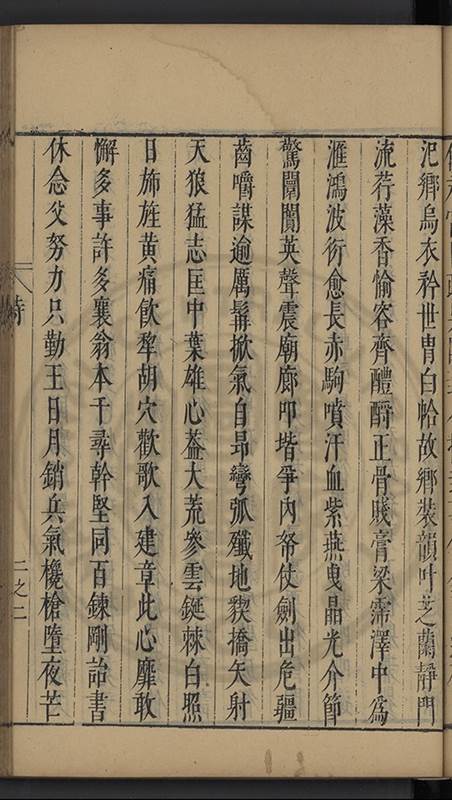 汜鄉烏衣矜世胄白帢故鄉裝韻叶芝蘭靜門
流荇藻香愉容齊醴酹正骨賤膏粱霈澤中為
滙鴻波衍愈長赤駒噴汗血紫燕曳晶光介節
驚闡闠英聲震廟廊叩堦爭內帑仗劍出危疆
齒嚼謀逾厲髯掀氣自昻彎弧殲地猰橋矢射
天狼猛志匡中葉雄心葢大荒參雲鋋棘白照
日斾旌黃痛飲犂胡穴歡歌入建章此心靡敢
懈多事許多襄翁本千尋幹堅同百鍊剛詒書
休念父努力只勤王日月銷兵氣欃槍墮夜芒
詩
二之二